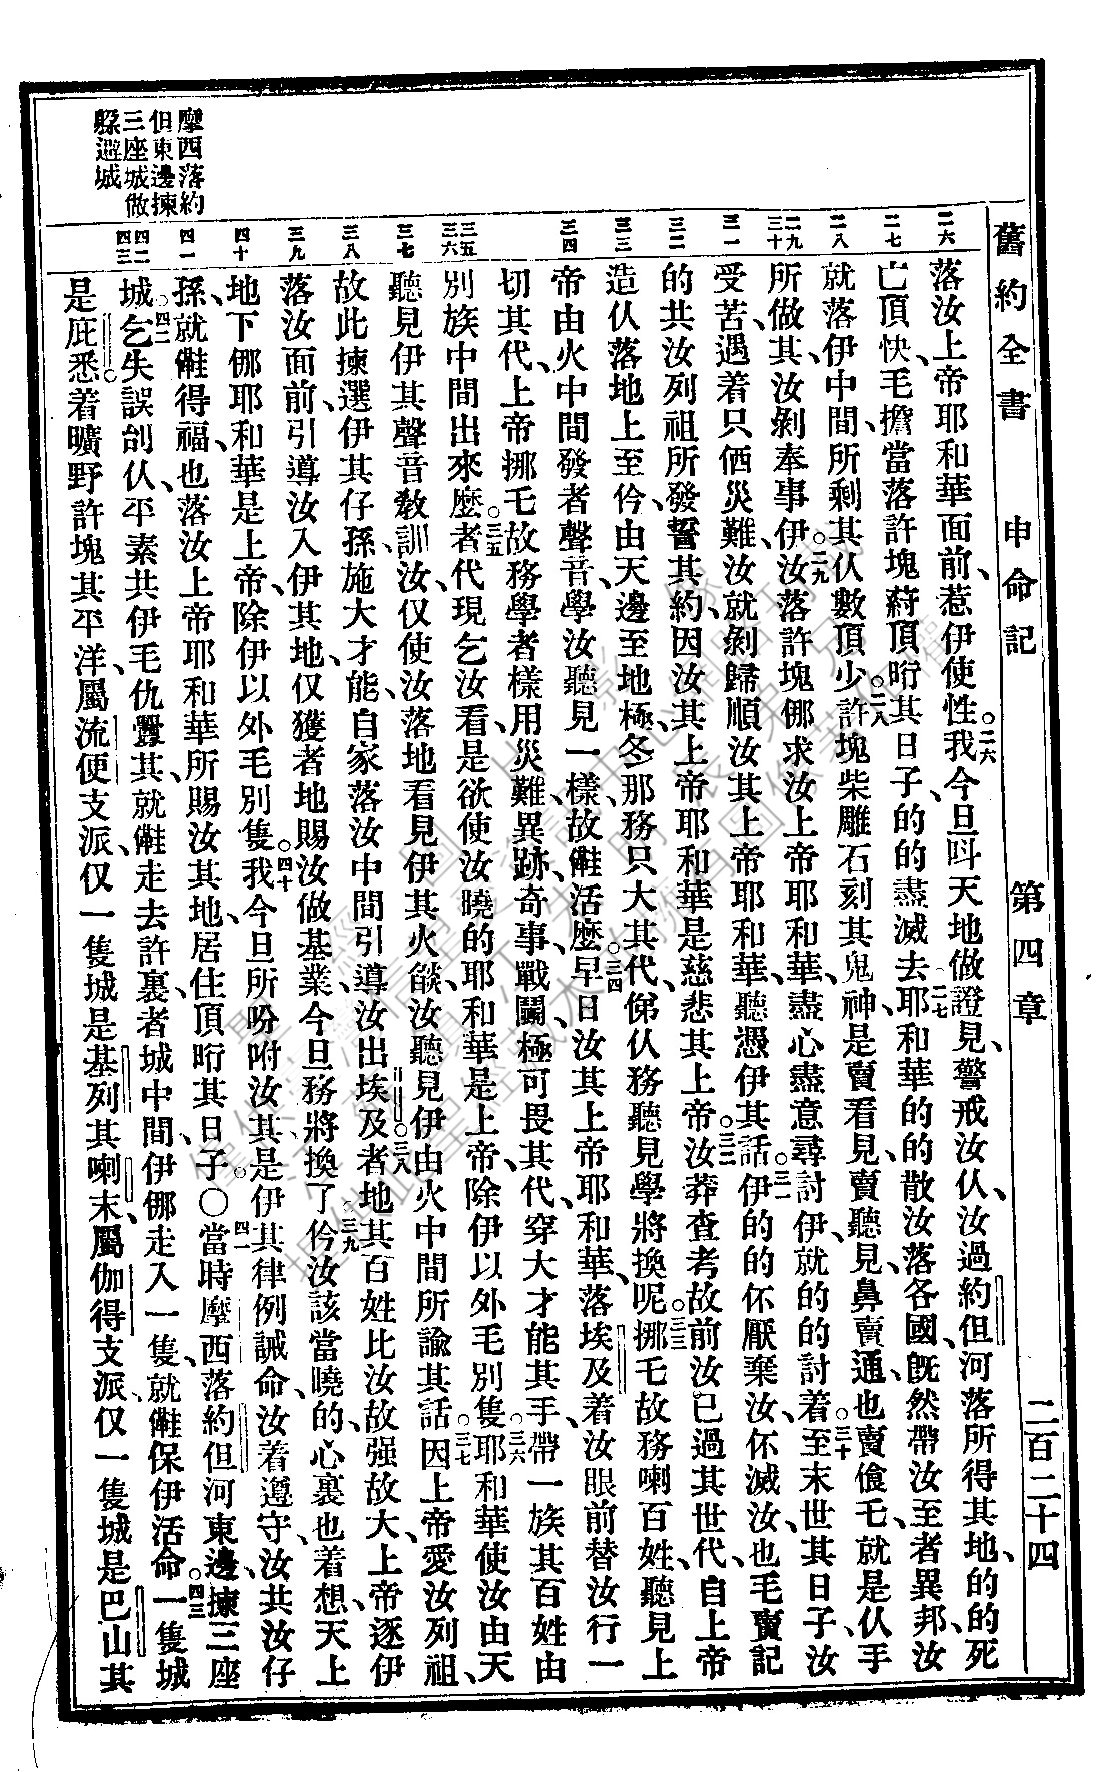 舊約全書 申命記 第四章 二百二十四
二六 二七 二八 二九 三十 三一 三二 三三 三四 三五 三六 三七 三八 三九 四十 四一 四二 四三
落汝上帝耶和華面前、惹伊使性。二六我今旦呌天地做證見、警戒汝仈、汝過約但河落所得其地、的的死
亡頂快、毛擔當落許塊、頂昉其日子、的的盡滅去。二七耶和華的的散汝落各國、旣然帶汝至者異邦、汝
就落伊中間、所剩其仈數頂少。二八許塊柴雕石刻其鬼神、是賣看見、賣聽見、鼻賣通、也賣食乇、就是仈手
所做其、汝剝奉事伊。二九汝落許塊㑚求汝上帝耶和華、盡心盡意尋討伊、就的的討着。三十至末世其日子、汝
受苦、遇着只𠆧災難、汝就剝歸順汝其上帝耶和華、聽憑伊其話。三一伊的的伓厭棄汝、伓滅汝、也毛賣記
的共汝列祖所發誓其約、因汝其上帝耶和華是慈悲其上帝。三二汝莽查考故前汝已過其世代、自上帝
造仈落地上至仱、由天邊至地極、冬那務只大其代、俤仈務聽見學將換呢。三三挪乇故務喇百姓、聽見上
帝由火中間發者聲音、學汝聽見一樣、故㒁活麽。三四早日汝其上帝耶和華、落埃及着汝眼前替汝行一
切其代、上帝挪乇故務學者樣、用災難、異跡、奇事、戰鬭、極可畏其代、穿大才能其手、帶一族其百姓、由
別族中間出來麽。三五者代現乞汝看、是欲使汝曉的耶和華是上帝、除伊以外毛別隻。三六耶和華使汝由天
聽見伊其聲音敎訓汝、仅使汝落地看見伊其火燄、汝聽見伊由火中間所諭其話。三七因上帝愛汝列祖、
故此揀選伊其仔孫、施大才能、自家落汝中間引導汝出埃及。三八者地其百姓比汝故强故大、上帝逐伊
落汝面前、引導汝入伊其地、仅獲者地賜汝做基業、今旦務將換了。三九仱汝該當曉的、心裏也着想、天上
地下㑚耶和華是上帝、除伊以外毛別隻。四十我今旦所吩咐汝其、是伊其律例誡命、汝着遵守、汝共汝仔
孫、就㒁得福、也落汝上帝耶和華所賜汝其地、居住頂昉其日子。〇四一當時摩西落約但河東邊揀三座
城。四二乞失誤刣仈、平素共伊毛仇釁其、就㒁走去許裏、者城中間、伊㑚走入一隻、就㒁保伊活命。四三一隻城
是庇悉、着曠野許塊其平洋、屬流便支派、仅一隻城是基列其喇末、屬伽得支派、仅一隻城是巴山其
摩西落約
但東邊揀
三座城做
躱避城